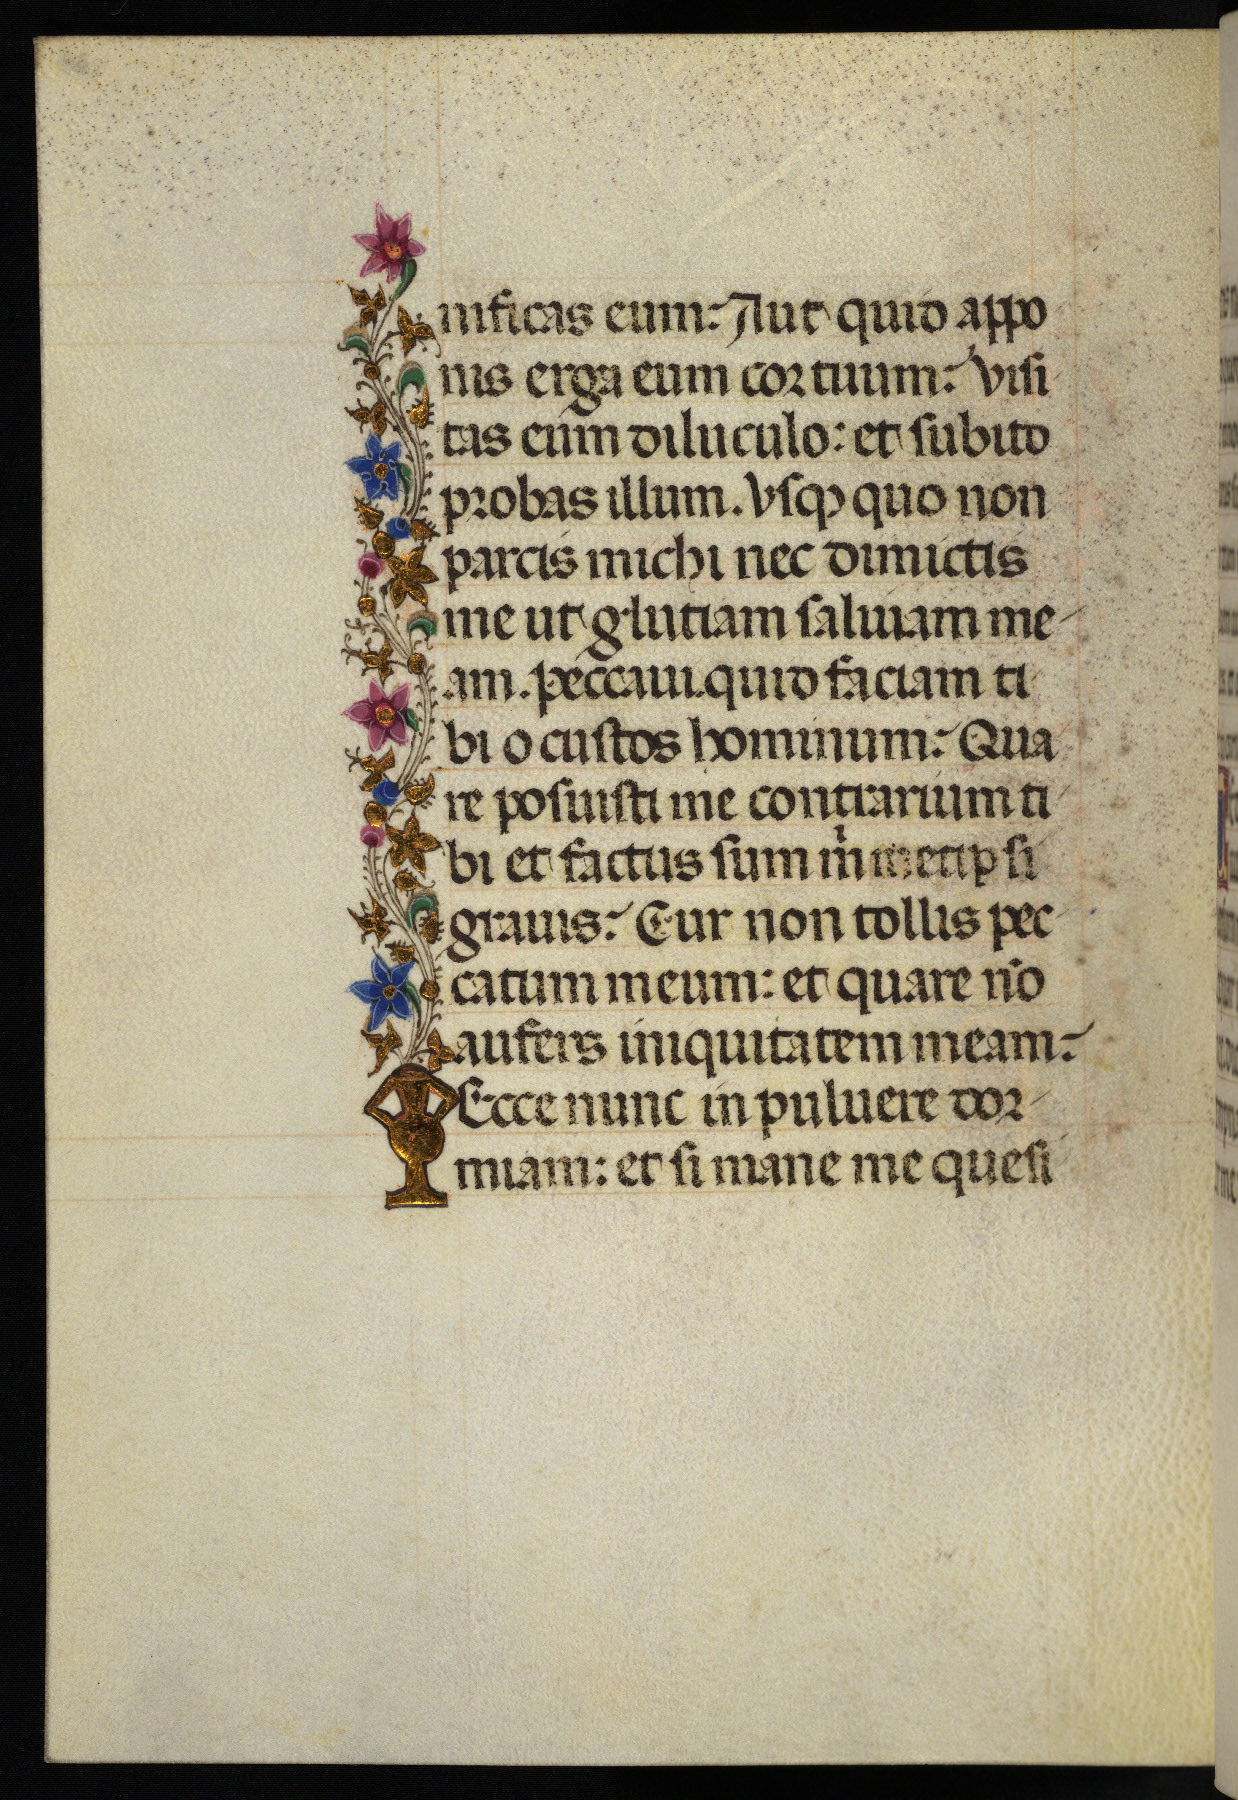 nificas eum? Aut quid appo
nis erga eum cor tuum? Visi
tas eum diluculo: et subito
probas illum. Vsqꝫ quo non
parcis michi nec dimictis
me ut glutiam saluiam me
am. peccaui. quid faciam ti
bi o custos hominum? Qua
re posuisti me contrarium ti
bi et factus sum m̍ metip̱si
grauis? Cur non tollis pec
catum meum: et quare nō
aufers iniquitatem meam?
Ecce nunc in puluere dor
miam: et si mane me quesi